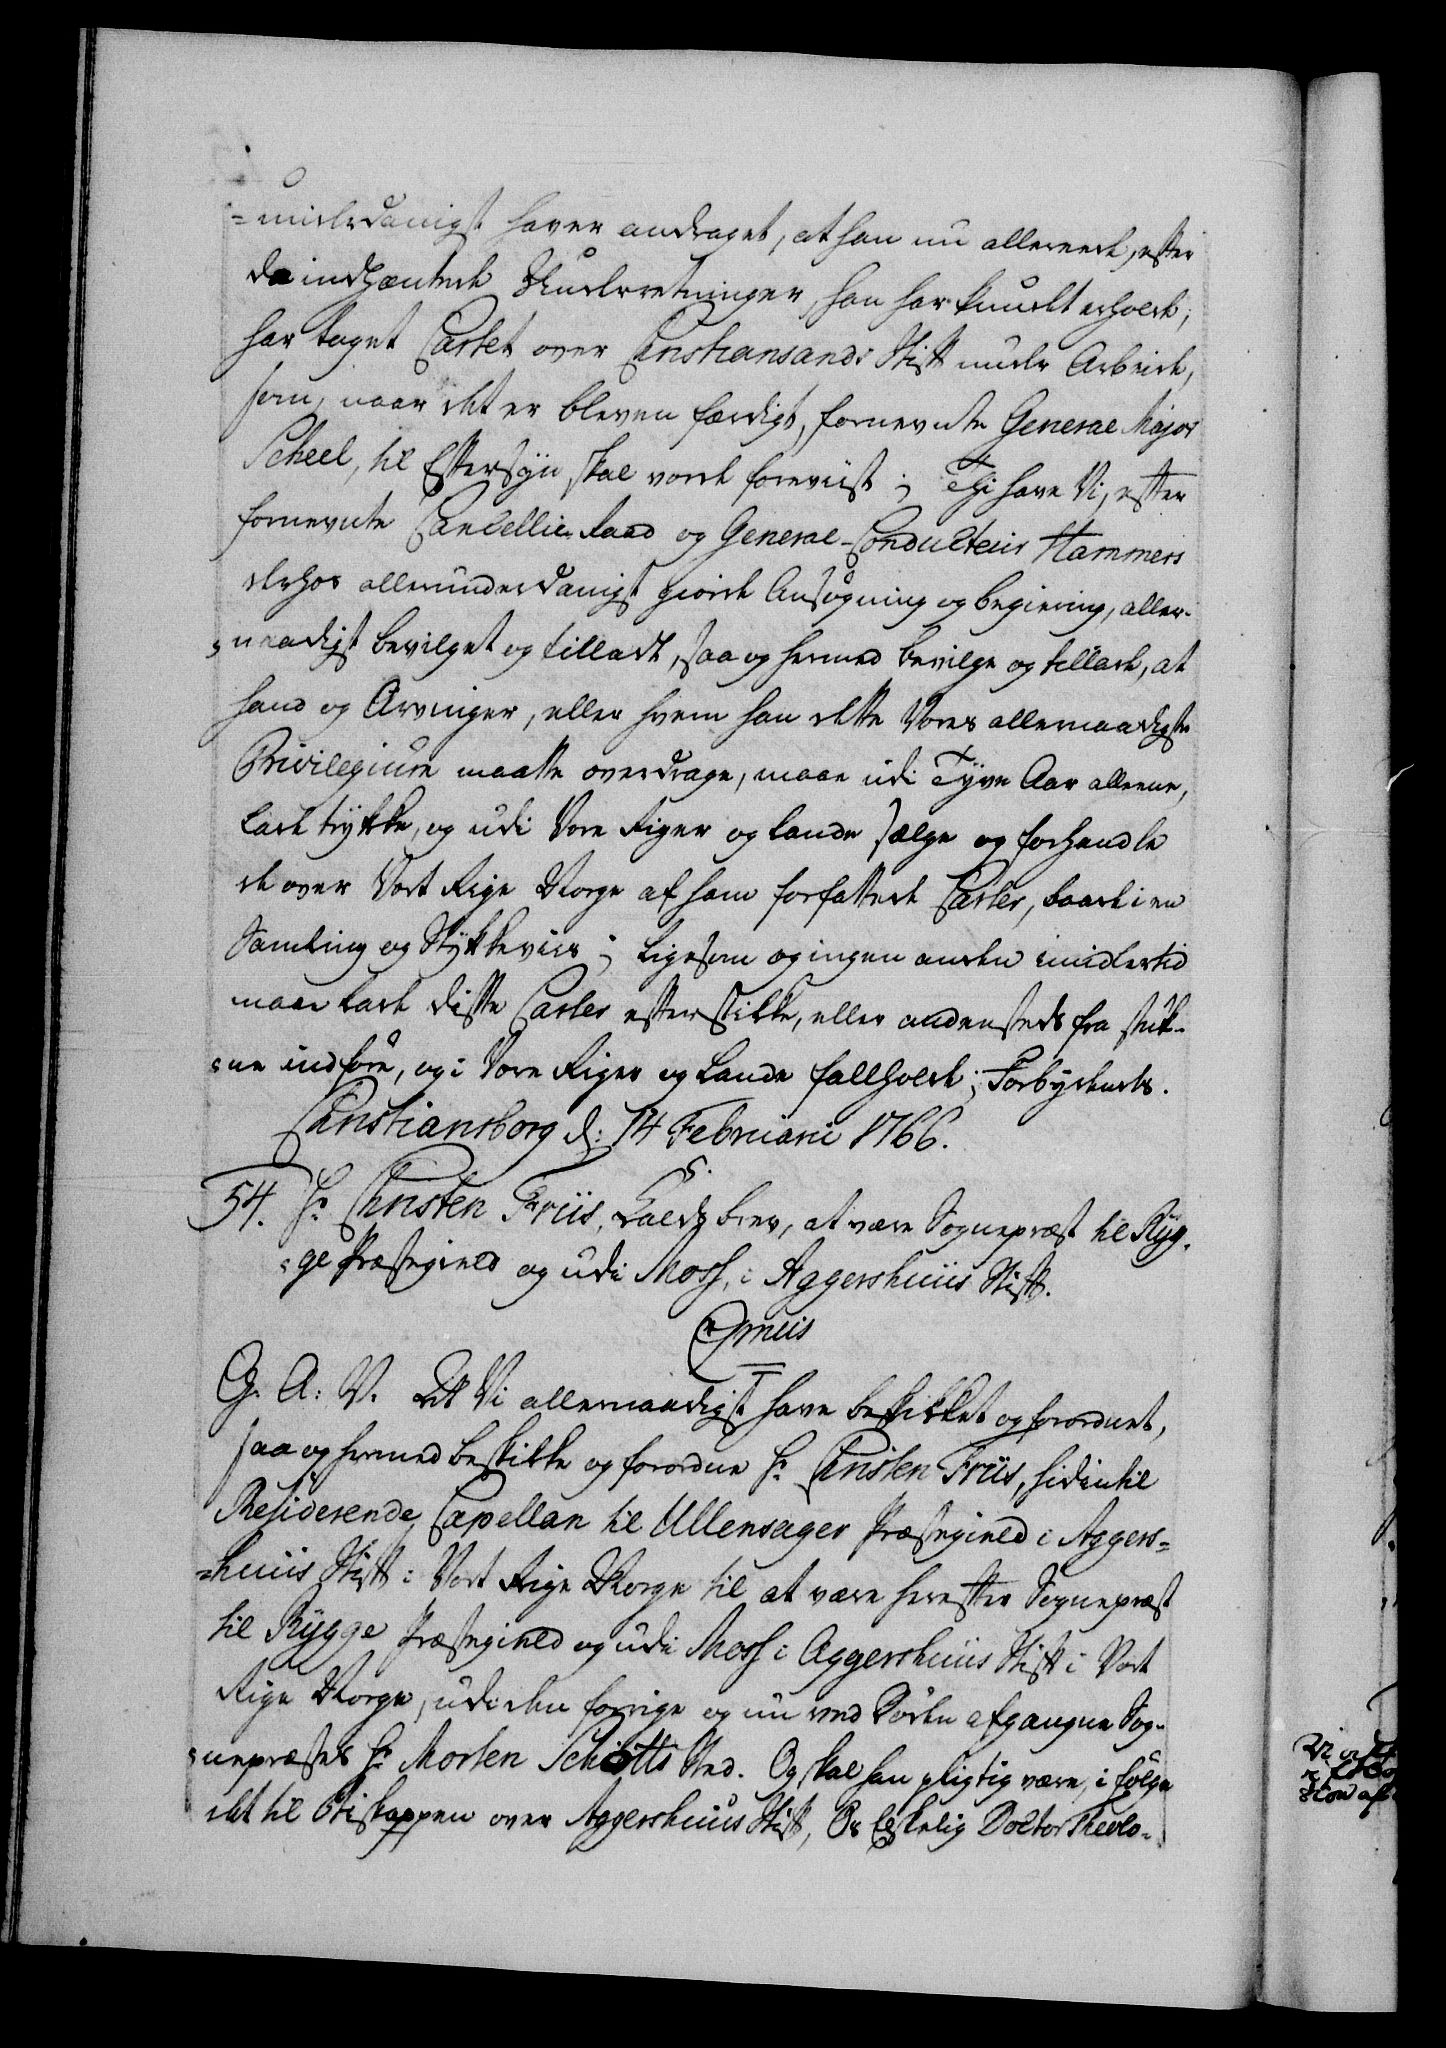 =underdanigst haver andraget, at han nu allereede, efter
de indhæntede Underretninger, han har kundet erholde,
har taget Cartet over Christiansands Stift under Arbeide,
som, naar det er bleven færdigt, fornevnte General Major
Scheel, til Eftersyn skal vorde foreviist; Thi have Vi, efter
fornevnte Cancellie-Raad og General-Conducteur Hammers
derhos allerunderdanigst giorde Ansøgning og begiering, aller-
=naadigst bevilget og tilladt, saa og hermed bevilge og tillade, at
hand og Arvinger, eller hvem han dette Vores allernaadigste
Privilegium maatte overdrage, maae udi Tyve Aar alleene,
lade trykke, og udi Vore Riger og Lande sælge og forhandle
de over Vort Rige Norge af ham forfattede Carter, baade i en
Samling og Stykkeviis; ligesom og ingen anden imidlertid
maae lade disse Carter efterstikke, eller andensteds fra stuk-
=ne indføre, og i Vore Riger og Lande falholde; Forbydendes.
Christiansborg d: 14 Februarii 1766.
54. Hr Christen Friis, Kaldsbrev, at være Sognepræst til Ryg-
=ge Præstegield og udi Moss, i Aggershuus Stift.
G. A: V. At Vi allernaadigst have beskikket og forordnet,
saa og hermed beskikke og forordne Hr Christen Friis, hidintil
Residerende Capellan til Ullensager Præstegield i Aggers=
=huus Stift i Vort Rige Norge til at være herefter Sognepræst
til Rygge Præstegield og udi Moss i Aggershuus Stift i Vort
Rige Norge, udi den forrige og nu ved Døden afgangne Sog-
=nepræstes Hr Morten Schiøtts Sted. Og skal han pligtig være, i følge
det til Biskoppen over Aggershuus Stift, Os Elskelig Doctor Theolo-